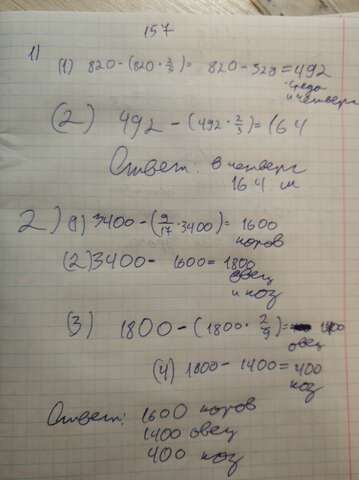 157
1)
(1) 820-(820·2/5)= 820-328=492
среда
и четверг
(2) 492-(492·2/3)=164
Ответ: в четверг
164 м
2) (1) 3400-(9/17·3400)= 1600
коров
(2) 3400- 1600=1800
овец
и коз
(3) 1800-(1800·2/9)= 1400
овец
(4) 1800-1400=400
коз
Ответ: 1600 коров
1400 овец
400 коз